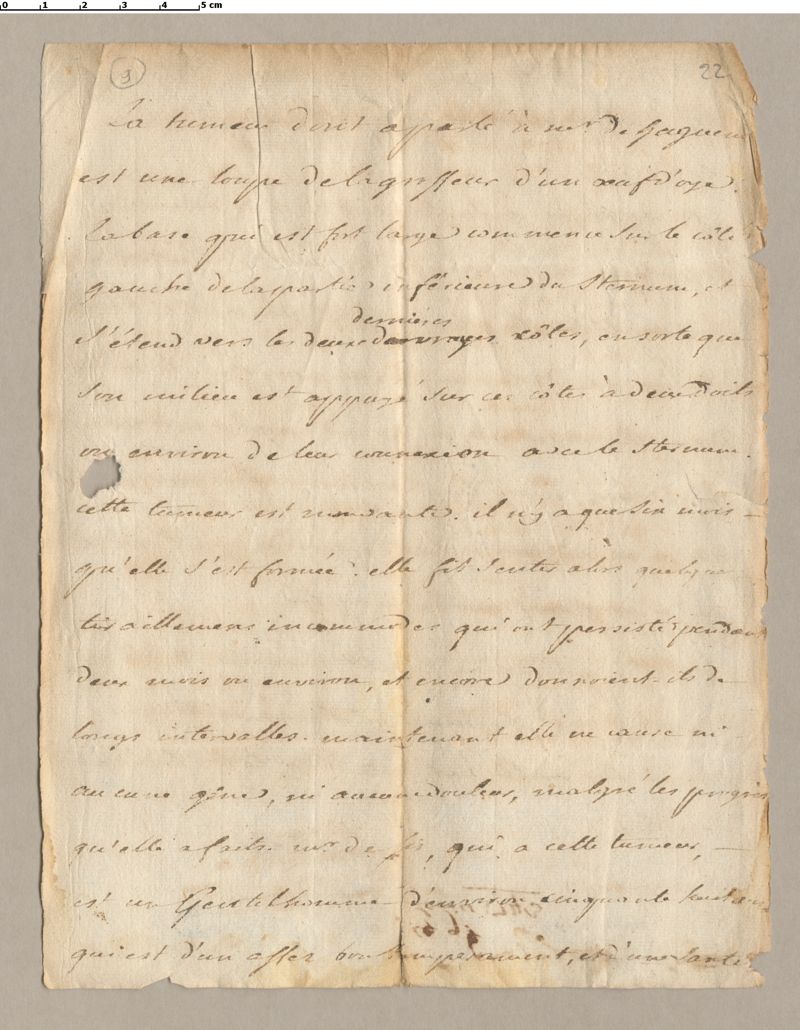 0 1 2 3 4 5 cm
9
22
La tumeur dont a parlé à mr. de
est une loupe de la grosseur d'un œuf d'oye.
La base qui est fort large commence sur le côté
gauche de la partie inférieure du Sternum, et
dernières
S'étend vers les deux côtes, en sorte que
Son milieu est appuyé sur ces côtes à deux doits
ou environ de leur connexion avec le Sternum.
cette tumeur est il n'y a que Six mois
qu'elle S'est formée. elle fit Sentir alors quelques
tiraillemens incommodes qui ont persisté pendant
deux mois ou environ, et encore donnoient-ils de
longs intervalles. maintenant elle ne cause ni
aucune gêne, ni aucune douleur, malgré les progrès
qu'elle a faits. mr. de qui a cette tumeur,
est un Gentilhomme d'environ cinquante
qui est d'un assez bon temperament, et d'une Santé